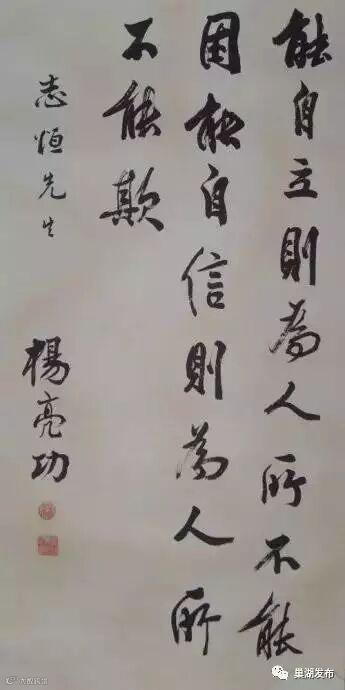 能自立則為人所不能
困能自信則為人所
不能欺
志恒先生
楊亮功
巢湖发布